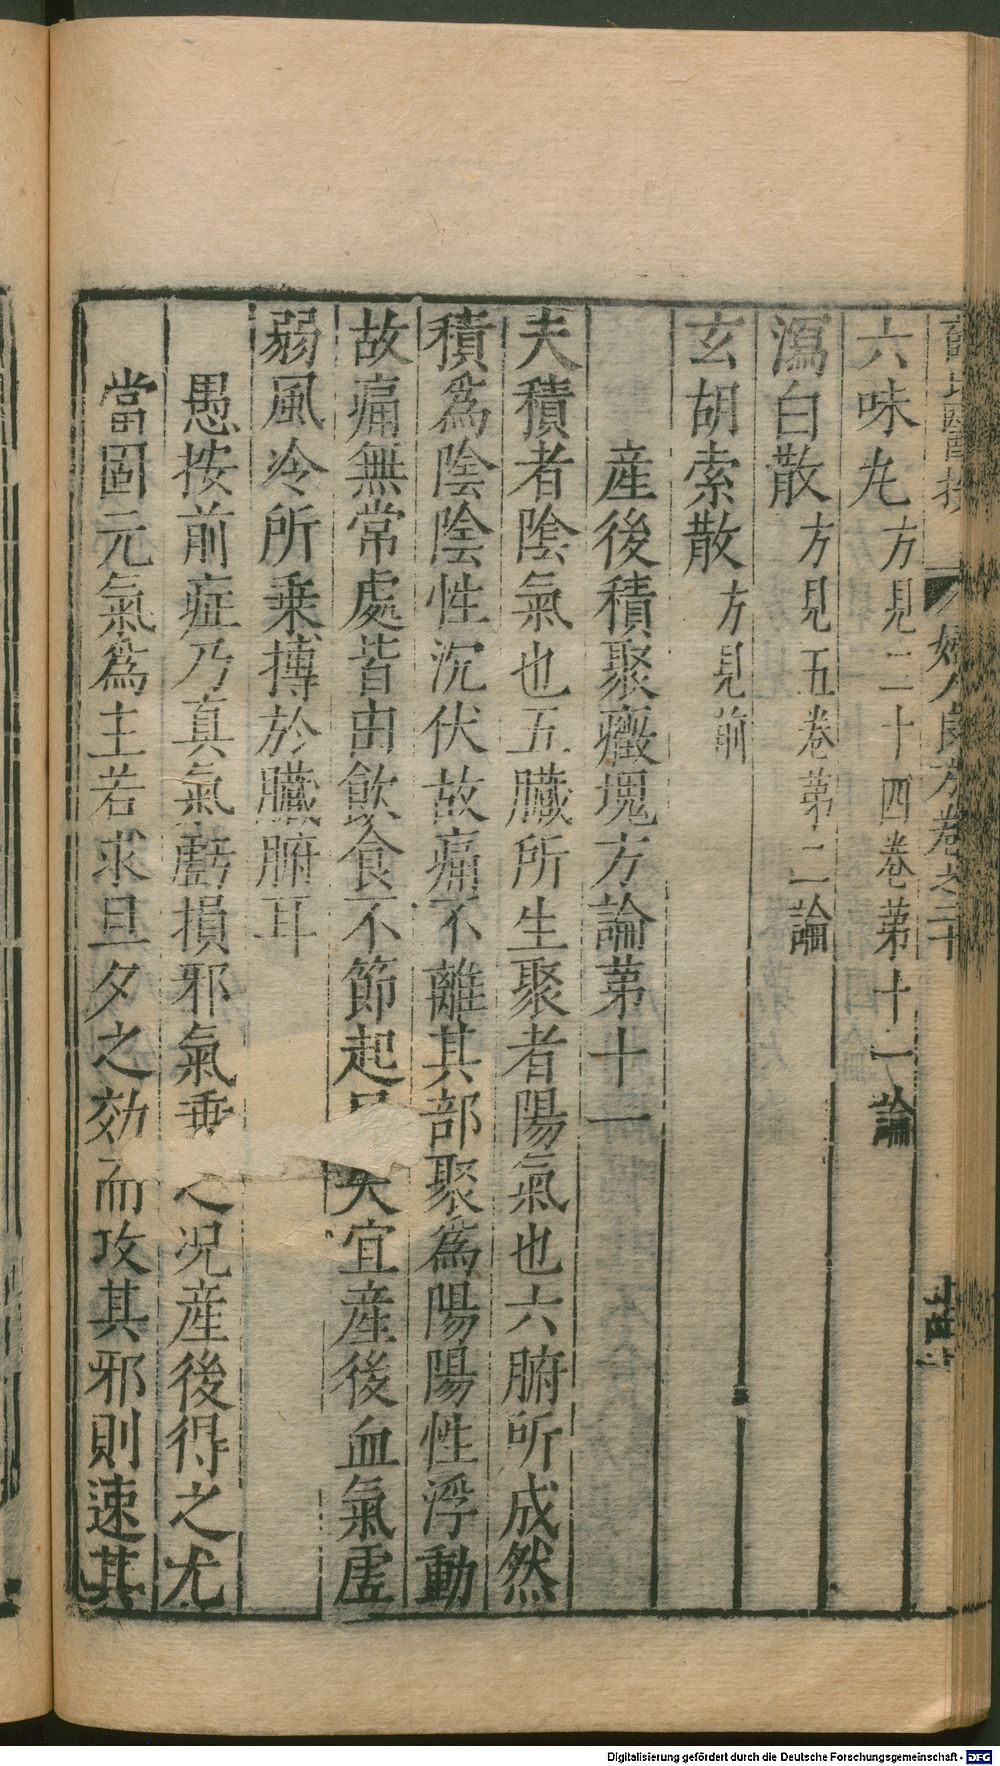 婦人良方卷之二十
六味丸方見二十四卷第十一論
瀉白散方見五卷第二論
玄胡索散方見前
産後積聚癥塊方論第十一
夫積者陰氣也五臟所生聚者陽氣也六腑所成然
積爲陰陰性沉伏故痛不離其部聚爲陽陽性浮動
故痛無常處皆由飲食不節起失宜産後血氣虚
弱風冷所乗搏於臓腑耳
愚按前症乃真氣虧損邪氣乗之况産後得之尤
當固元氣爲主若求旦夕之効而攻其邪則速其
Digitalisierung gefördert durch die Deutsche Forschungsgemeinschaft - DFG